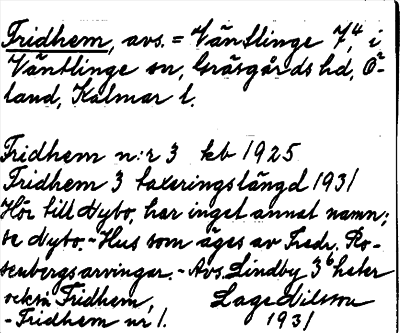 Fridhem, avs. = Väntlinge 7⁴, i
Väntlinge sn, Gräsgårds hd, Ö-
land, Kalmar l.
Fridhem n:r 3 kb 1925
Fridhem 3 taxeringslängd 1931
Hör till Nybo, har inget annat namn;
se Nybo. - Hus som äges av Fredr. Ro-
senbergs arvingar. - Avs. Lindby 3⁶ heter
också Fridhem,
- Fridhem nr 1.
Lage Nilsson
1931